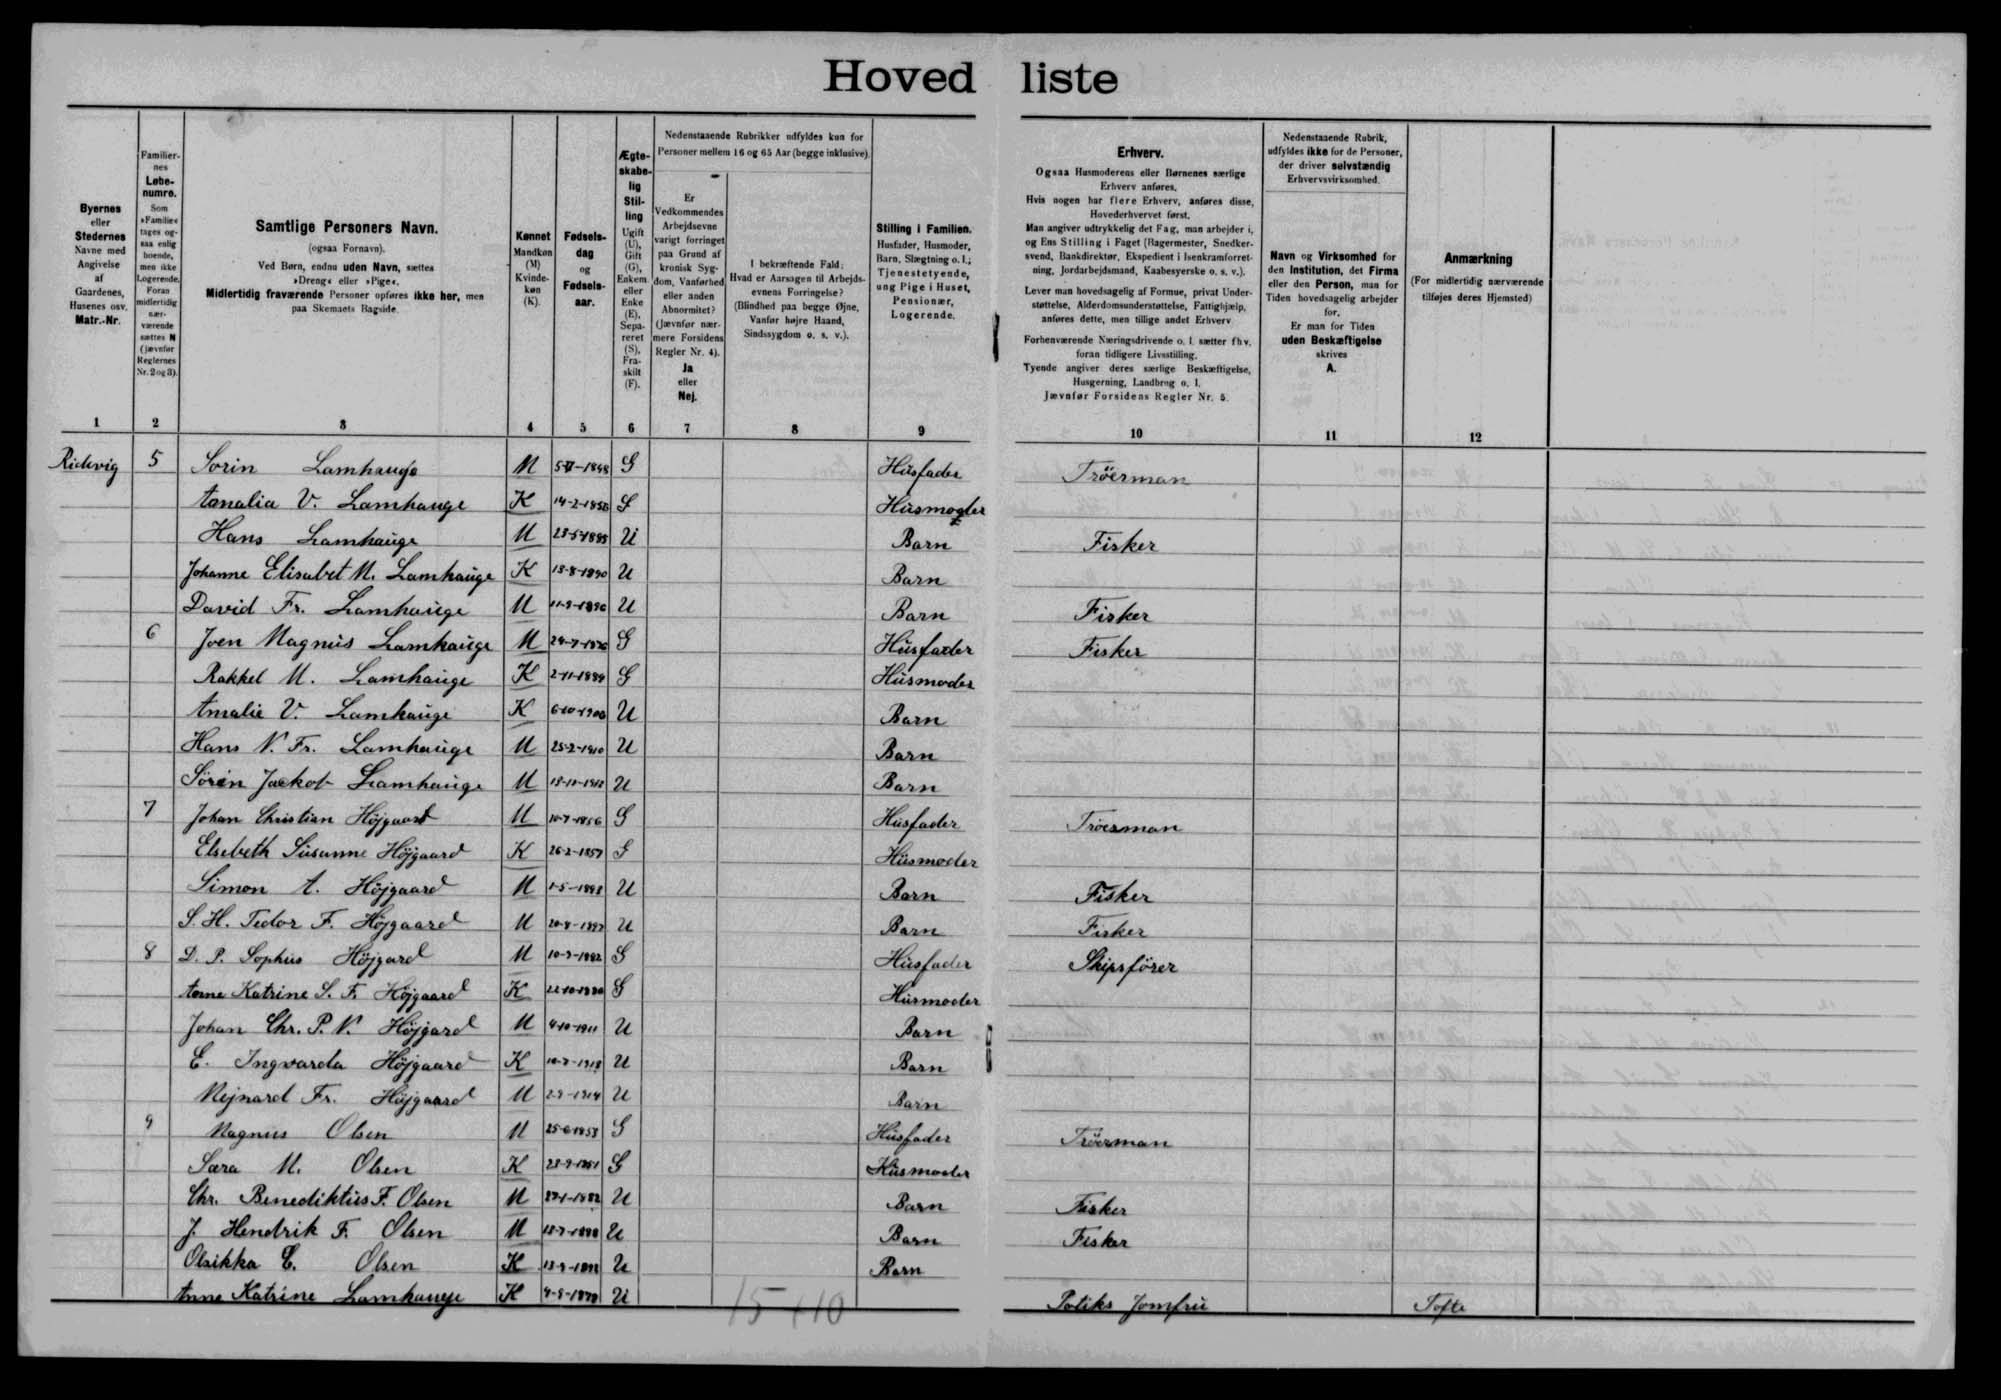 Hovedliste
Byernes eller Stedernes Navne med Angivelse af Gaardenes, Husenes osv. Matr.-Nr.
Familiernes Løbenumre. Som »Familie« tages ogsaa enlig boende, men ikke Logerende. Foran midlertidig nærværende sættes N (jævnfør Reglernes Nr. 2 og 3).
Samtlige Personers Navn.
(ogsaa Fornavn).
Ved Børn, endnu uden Navn, sættes
»Dreng« eller »Pige«.
Midlertidig fraværende Personer opføres ikke her, men
paa Skemaets Bagside.
Kønnet Mandkøn (M) Kvindekøn (K).
Fødselsdag og Fødselsaar.
Ægteskabelig Stilling Ugift (U), Gift (G), Enkem. eller Enke (E), Separeret (S), Fraskilt (F).
Nedenstaaende Rubrikker udfyldes kun for
Personer mellem 16 og 65 Aar (begge inklusive).
Er Vedkommendes Arbejdsevne varigt forringet paa Grund af kronisk Sygdom, Vanførhed eller anden Abnormitet? (Jævnfør nærmere Forsidens Regler Nr. 4). Ja eller Nej.
I bekræftende Fald: Hvad er Aarsagen til Arbejdsevnens Forringelse? (Blindhed paa begge Øjne, Vanfør højre Haand, Sindssygdom o. s. v.).
Stilling i Familien.
Husfader, Husmoder, Barn, Slægtning o. l.; Tjenestetyende, ung Pige i Huset, Pensionær, Logerende.
Erhverv.
Ogsaa Husmoderens eller Børnenes særlige
Erhverv anføres.
Hvis nogen har flere Erhverv, anføres disse,
Hovederhvervet først.
Man angiver udtrykkelig det Fag, man arbejder i,
og Ens Stilling i Faget (Bagermester, Snedkersvend, Bankdirektør, Ekspedient i Isenkramforretning, Jordarbejdsmand, Kaabesyerske o. s. v.).
Lever man hovedsagelig af Formue, privat Understøttelse, Alderdomsunderstøttelse, Fattighjælp,
anføres dette, men tillige andet Erhverv
Forhenværende Næringsdrivende o. l. sætter fhv.
foran tidligere Livsstilling.
Tyende angiver deres særlige Beskæftigelse,
Husgerning, Landbrug o. l.
Jævnfør Forsidens Regler Nr. 5.
Nedenstaaende Rubrik,
udfyldes ikke for de Personer,
der driver selvstændig
Erhvervsvirksomhed.
Navn og Virksomhed for
den Institution, det Firma
eller den Person, man for
Tiden hovedsagelig arbejder
for.
Er man for Tiden
uden Beskæftigelse
skrives
A.
Anmærkning
(For midlertidig nærværende
tilføjes deres Hjemsted)
1 2 3 4 5 6 7 8 9 10 11 12
Ridevig 5 Sorin Lamhauge M 1848 G Husfader Tröerman
Amalia V. Lamhauge K 14-2-1850 G Husmoder
Hans Lamhauge M U Barn Fisker
Johanne Elisabet M. Lamhauge K 18-8-1890 U Barn
David Fr. Lamhauge M U Barn Fisker
6 Joen Magnus Lamhauge M G Husfader Fisker
Rakkel M. Lamhauge K 2-11-1884 G Husmoder
Amalie V. Lamhauge K U Barn
Hans N. Fr. Lamhauge M 25-2-1910 U Barn
Sörin Jackob Lamhauge M U Barn
7 Johan Christian Höjgaard M 10-7-1856 G Husfader Tröerman
Elsebeth Susanne Höjgaard K 26-2-1857 G Husmoder
Simon A. Höjgaard M U Barn Fisker
S. H. Tedor F. Höjgaard M U Barn Fisker
8 D. P. Sophus Höjgard M G Husfader Skipsförer
Anne Katrine S. F. Höjgaard K G Husmoder
Johan Chr. P. N. Höjgard M 4-10-1911 U Barn
E. Ingvarda Höjgaard K U Barn
Mejnard Fr. Höjgaard M 2-9-1914 U Barn
9 Magnus Olsen M G Husfader Tröerman
Sara M. Olsen K G Husmoder
Chr. Benediktus F. Olsen M U Barn Fisker
J. Hendrik F. Olsen M U Barn Fisker
Olsikka E. Olsen K U Barn
Anne Katrine Lamhauge K U Jomfru Tofte
15 + 10